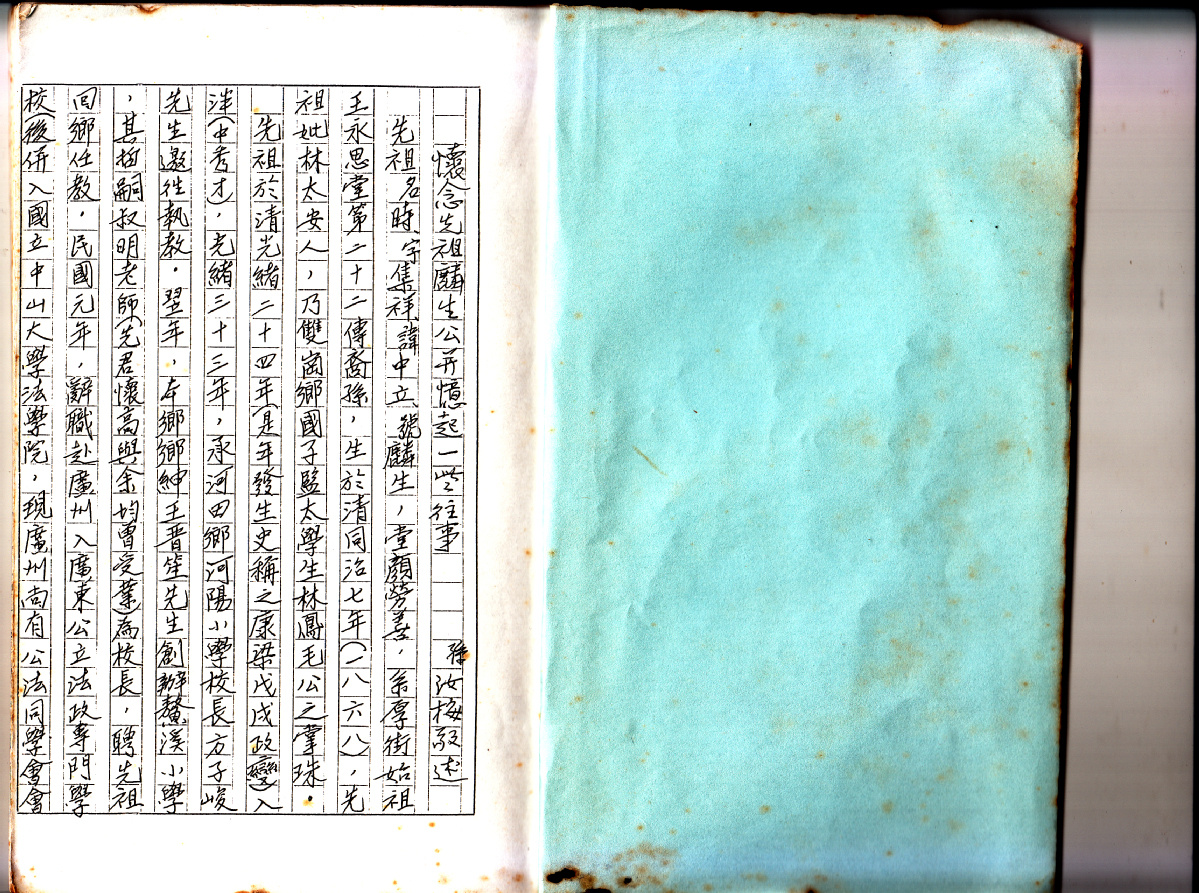 懷念先祖麟生公并憶起一些往事 孫汝梅敬述
先祖名時、字集祥、諱中立、號麟生，堂顏勞善，系厚街始祖
王永思堂第二十二傳裔孫，生於清同治七年(一八六八)，先
祖妣林太安人，乃雙崗鄉國子監太學生林鳳毛公之掌珠。
先祖於清光緒二十四年(是年發生史稱之康梁戊戌政變)入
泮(中秀才)，光緒三十三年，承河田鄉河陽小學校長方子峻
先生邀往執教。翌年，本鄉鄉紳王晋笙先生創辦鰲溪小學
，其哲嗣叔明老師(先君懷高與余均曾受業)為校長，聘先祖
回鄉任教。民國元年，辭職赴廣州入廣東公立法政專門學
校(後併入國立中山大學法學院，現廣州尚有公法同學會會